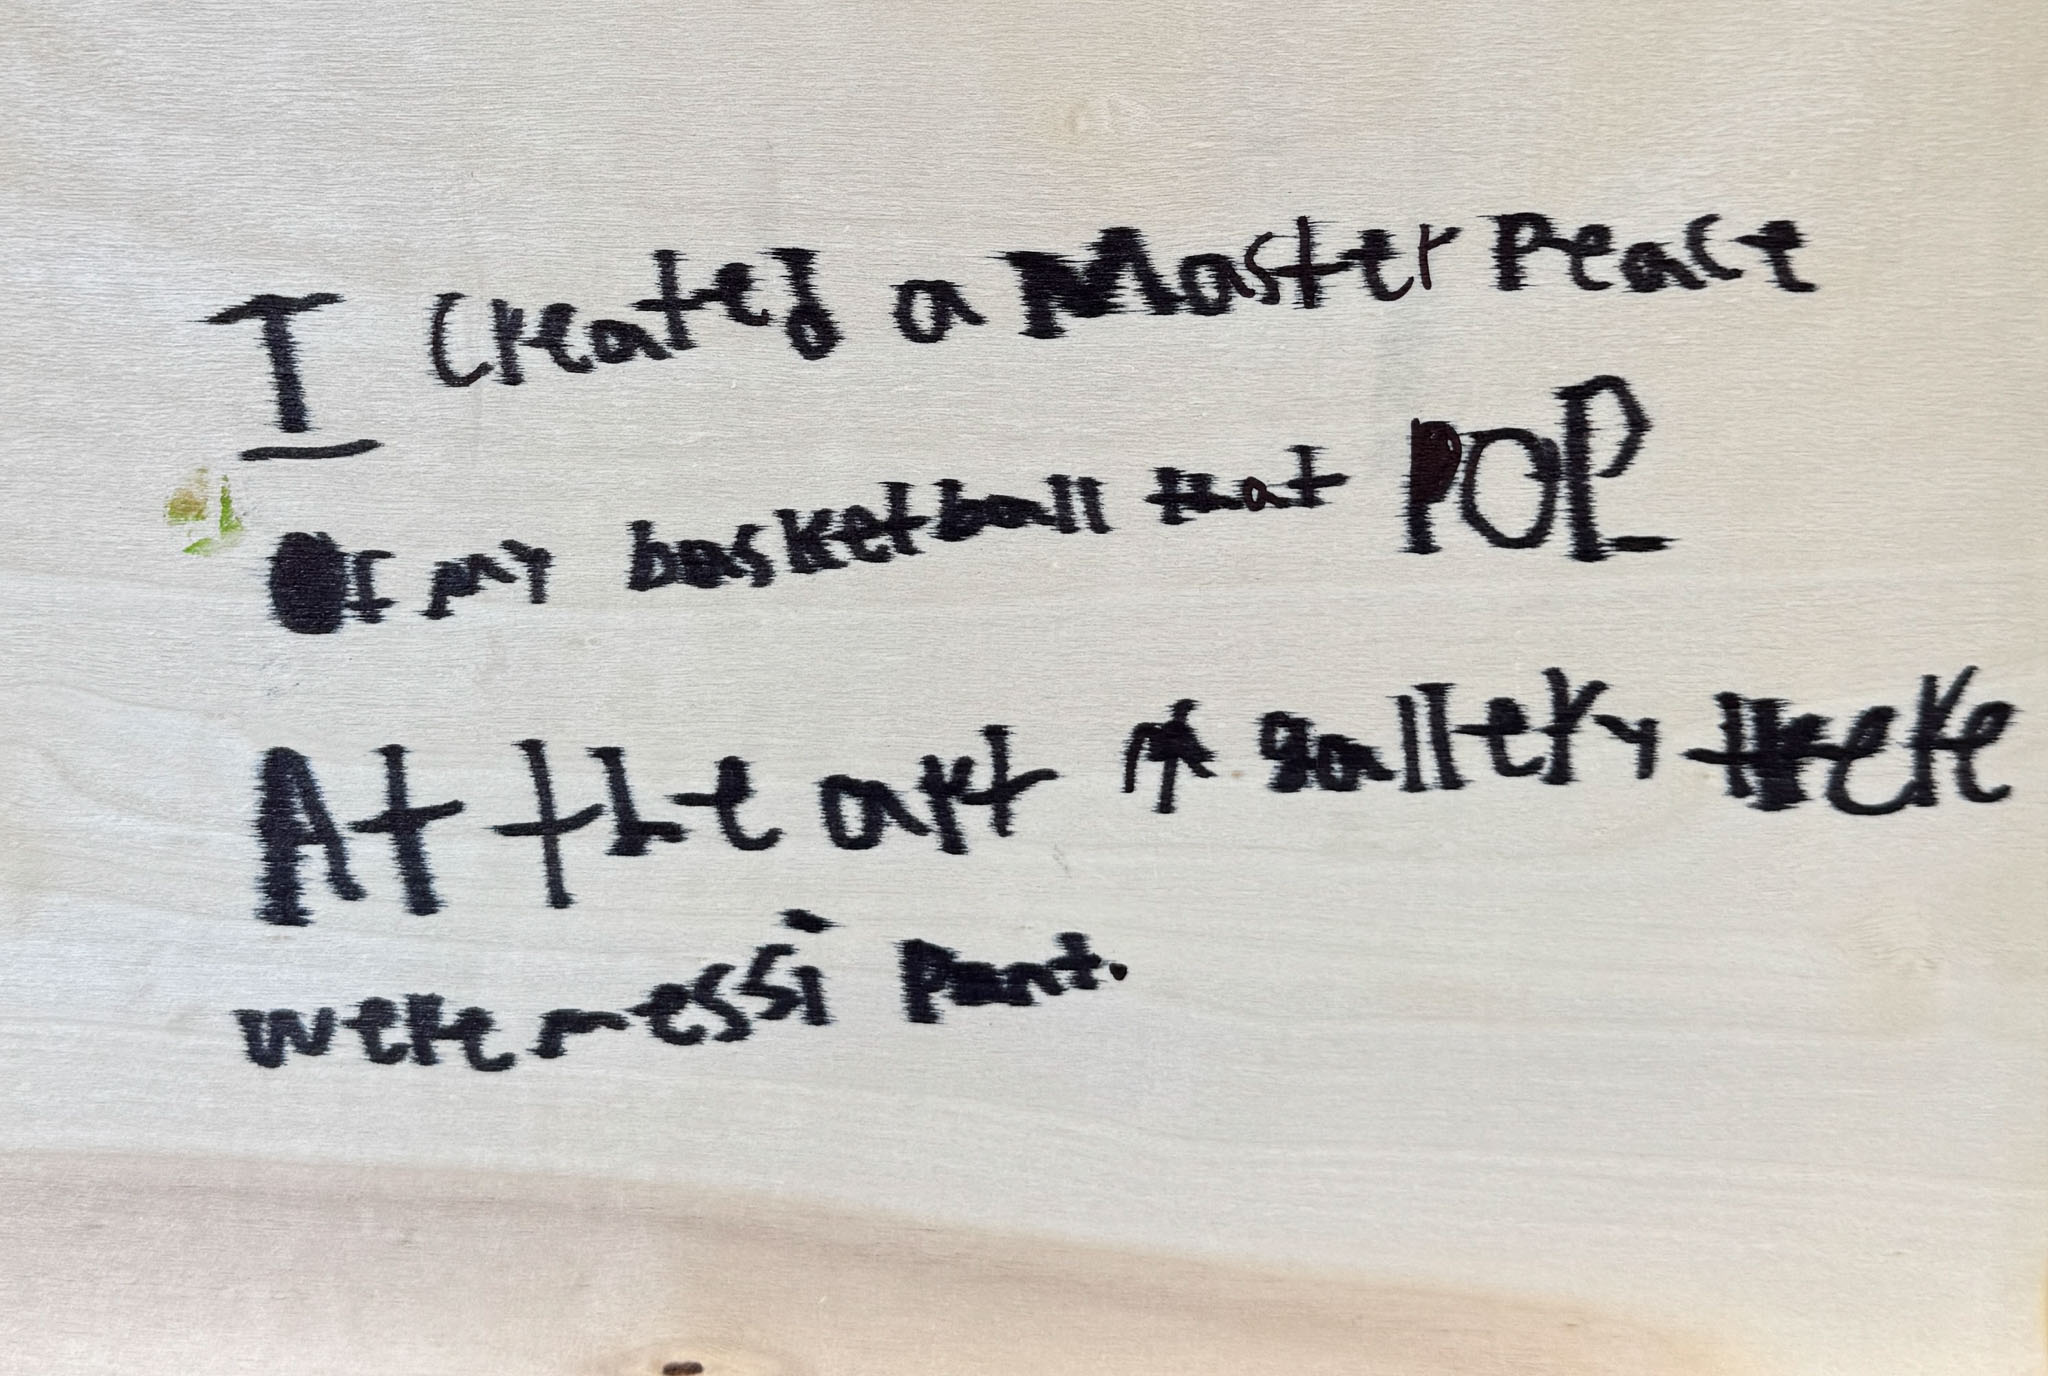 I created a Master Peace
Of my basketball that POP
At the art gallery there
were messi Pant.